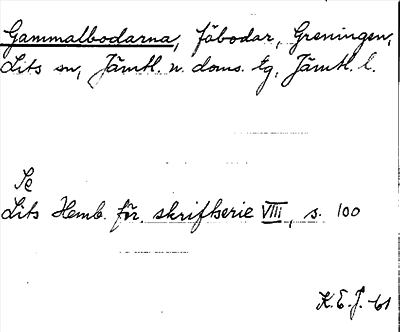 Gammalbodarna, fäbodar, Greningen,
Lits sn, Jämtl. n. doms. tg, Jämtl. l.
Se
Lits Hemb. för. skriftserie VIII, s. 100
K. E. J. -61